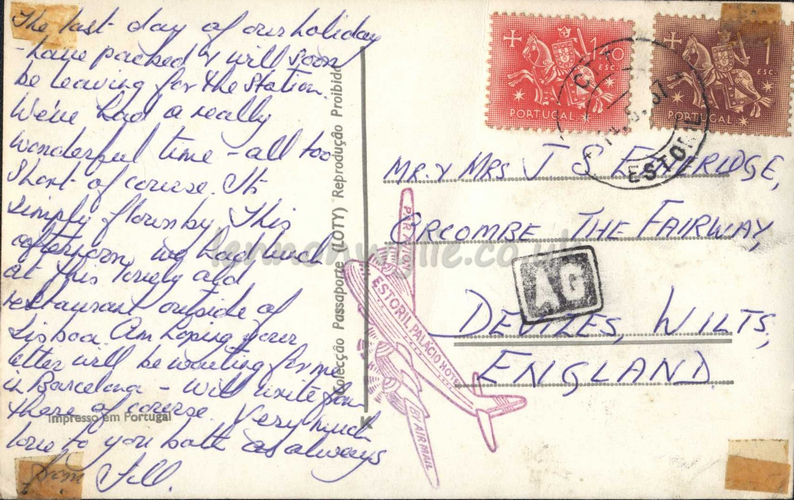 The last day of our holiday
- have packed & will soon
be leaving for the station.
We've had a really
wonderful time - all too
short of course. It's
simply flown by. This
afternoon we had lunch
at this lovely old
restaurant outside of
Lisboa. Am hoping your
letter will be waiting for me
in Barcelona - will write from
there of course. Very much
love to you both as always
from Jill.
Impresso em Portugal
Colecção Passaporte (LOTY) Reprodução Proibida
1$0
ESC.
PORTUGAL
1
ESC.
PORTUGAL
ESTORIL
MR. & MRS J S ETHERIDGE,
ORCOMBE THE FAIRWAY,
DEVIZES, WILTS,
ENGLAND
AG
ESTORIL PALACIO HOTEL
BY AIR MAIL
PAR AVION
lennonwylie.co.uk